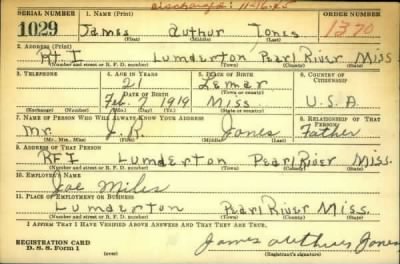 discharged: 11-16-45
SERIAL NUMBER 1. NAME (Print) ORDER NUMBER
1029 James Authur Jones 1370
(First) (Middle) (Last)
2. ADDRESS (Print)
Rt I Lumberton Pearl River Miss
(Number and street or R. F. D. number) (Town) (County) (State)
3. TELEPHONE 4. AGE IN YEARS 5. PLACE OF BIRTH 6. COUNTRY OF CITIZENSHIP
21 Lemar
DATE OF BIRTH (Town or county)
Feb. 7 1919 Miss. U.S.A
(Exchange) (Number) (Mo.) (Day) (Yr.) (State or country)
7. NAME OF PERSON WHO WILL ALWAYS KNOW YOUR ADDRESS 8. RELATIONSHIP OF THAT PERSON
Mr. J. R. Jones Father
(Mr., Mrs., Miss) (First) (Middle) (Last)
9. ADDRESS OF THAT PERSON
RFI Lumderton Pearl River Miss.
(Number and street or R. F. D. number) (Town) (County) (State)
10. EMPLOYER'S NAME
Joe Miles
11. PLACE OF EMPLOYMENT OR BUSINESS
Lumderton Pearl River Miss.
(Number and street or R. F. D. number) (Town) (County) (State)
I AFFIRM THAT I HAVE VERIFIED ABOVE ANSWERS AND THAT THEY ARE TRUE.
REGISTRATION CARD
D. S. S. Form 1 (over) James Authur Jones
(Registrant's signature)